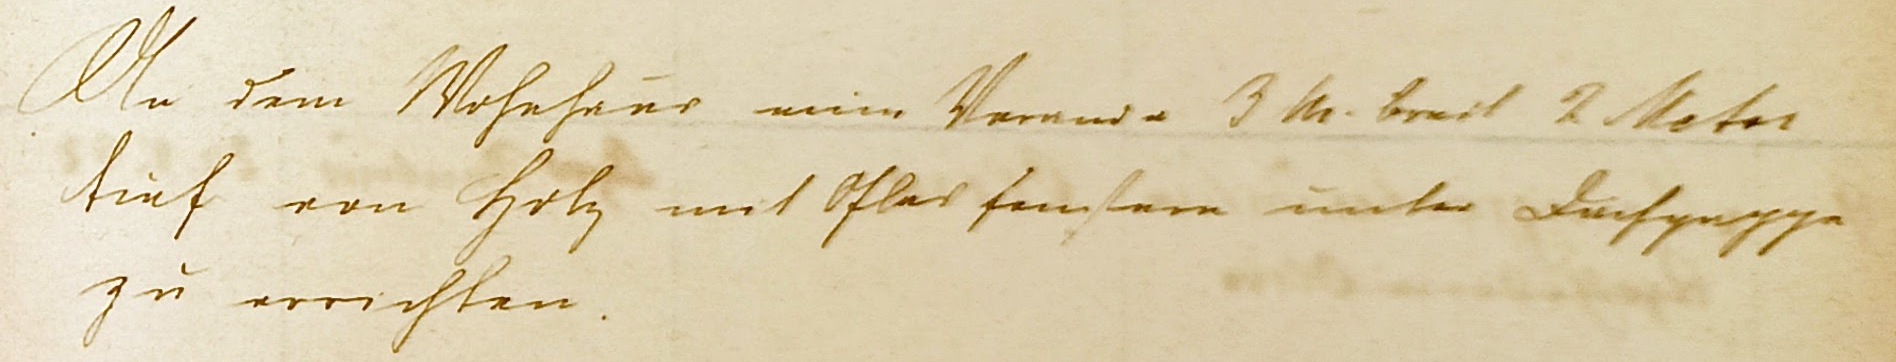 An dem Wohnhaus eine Veranda 3 M. breit 2 Meter
tief von Holz mit Glasfenstern unter Dachpappe
zu errichten.